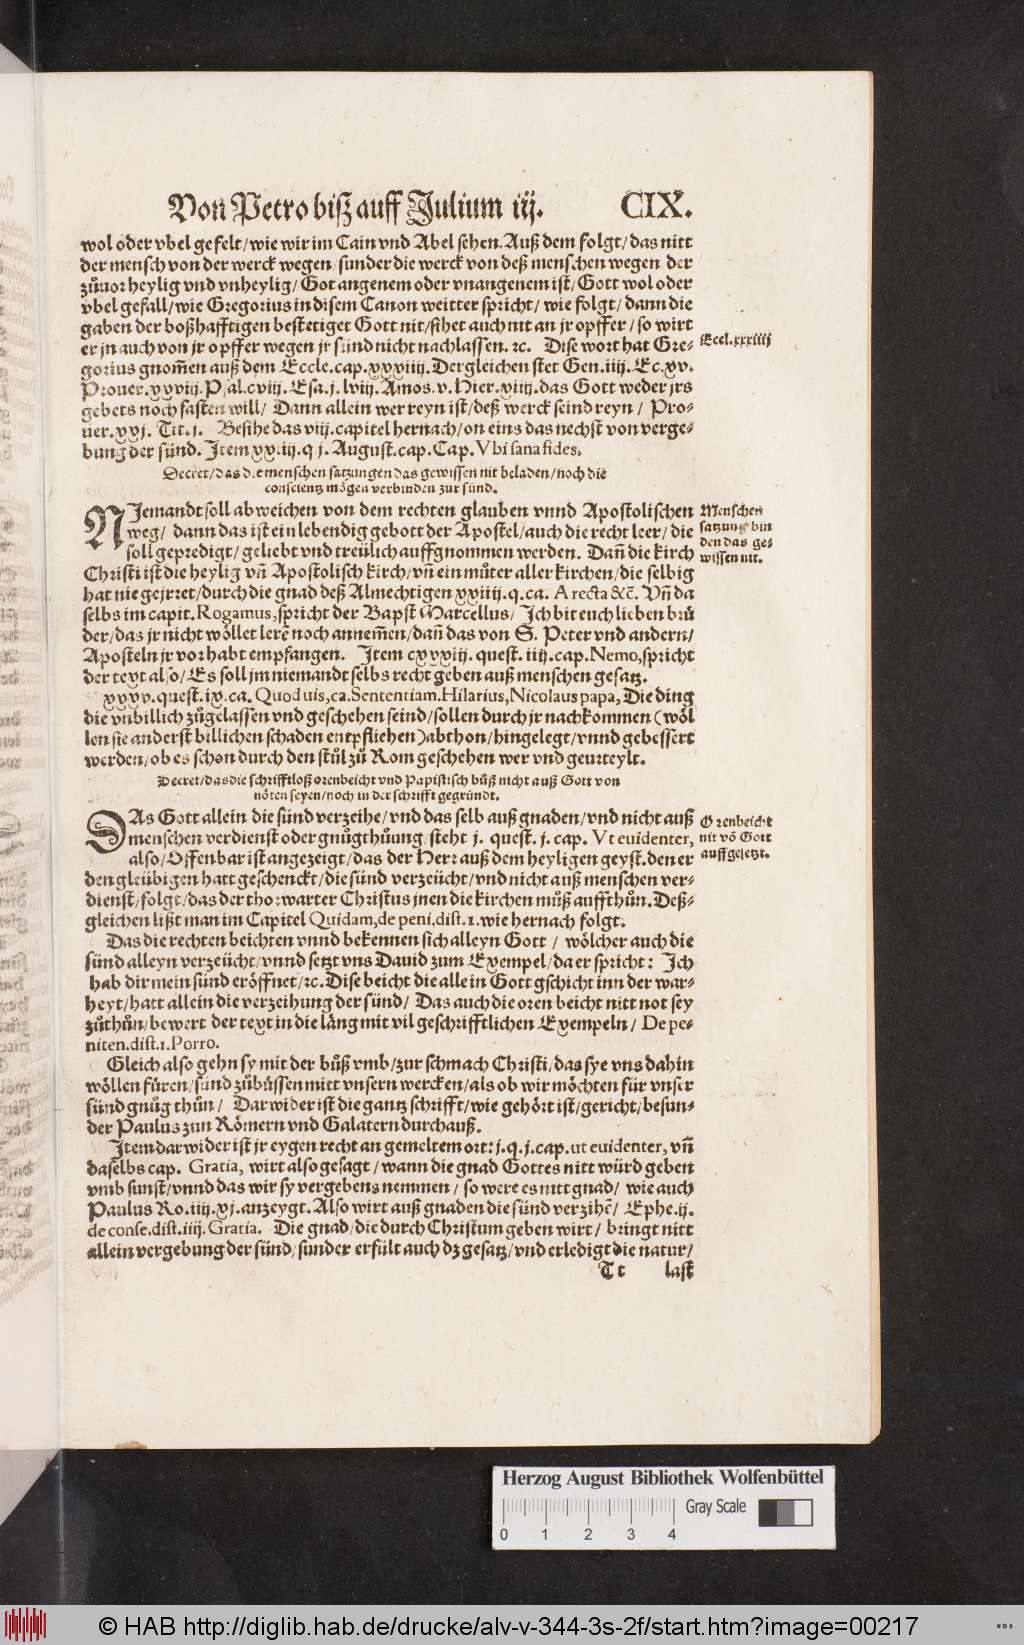 Von Petro biß auff Julium iij. CIX.
wol oder vbel gefelt/wie wir im Cain vnd Abel sehen. Auß dem folgt/das nitt
der mensch von der werck wegen/sunder die werck von deß menschen wegen der
zůuor heylig vnd vnheylig/Got angenem oder vnangenem ist/Gott wol oder
vbel gefall/wie Gregorius in disem Canon weitter spricht/ wie folgt/ dann die
gaben der boßhafftigen bestetiget Gott nit/sihet auch nit an jr opffer/so wirt
er jn auch von jr opffer wegen jr sünd nicht nachlassen. ꝛc. Dise wort hat Gre-
gorius gnom̃en auß dem Eccle.cap.xxxiiij. Dergleichen stet Gen.iiij. Ec.xv.
Prouer.xxviij. Psal.cviij. Esa.j.lviij. Amos.v. Hier.xiiij.das Gott weder jrs
gebets noch fasten will/ Dann allein wer reyn ist/deß werck seind reyn/ Pro-
uer.xxj. Tit.j. Besihe das viij.capitel hernach/on eins das nechst von verge-
bung der sünd. Item xx.iij.q j. August.cap.Cap. Vbi sana fides.
Eccl.xxxiiij
Decret/das die menschen satzungen das gewissen nit beladen/noch die
conscientz mögen verbinden zur sünd.
NJemandt soll abweichen von dem rechten glauben vnnd Apostolischen
weg/ dann das ist ein lebendig gebott der Apostel/auch die recht leer/die
soll gepredigt/geliebt vnd treülich auffgnommen werden. Dañ die kirch
Christi ist die heylig vñ Apostolisch kirch/vñ ein můter aller kirchen/die selbig
hat nie gejrret/durch die gnad deß Almechtigen xxiiij.q.ca. A recta &c̃. Vñ da
selbs im capit. Rogamus, spricht der Bapst Marcellus/ Jch bit euch lieben brů
der/das jr nicht wöllet lerẽ noch annem̃en/dañ das von S. Peter vnd andern/
Aposteln jr vor habt empfangen. Item cxxxiij. quest. iiij.cap. Nemo, spricht
der text also/Es soll jm niemandt selbs recht geben auß menschen gesatz.
Menschen
satzung bin
den das ge-
wissen nit.
xxxv.quest.ix.ca. Quod uis, ca. Sententiam. Hilarius, Nicolaus papa, Die ding
die vnbillich zůgelassen vnd geschehen seind/sollen durch jr nachkommen (wöl
len sie anderst billichen schaden entpfliehen) abthon/hingelegt/vnnd gebessert
werden/ob es schon durch den stůl zů Rom geschehen wer vnd geurteylt.
Decret/das die schrifftloß orenbeicht vnd Papistisch bůß nicht auß Gott von
nöten seyen/noch in der schrifft gegründt.
DAs Gott allein die sünd verzeihe/vnd das selb auß gnaden/vnd nicht auß
menschen verdienst oder gnůgthůung/steht j. quest. j. cap. Vt euidenter,
also/Offenbar ist angezeigt/das der Herr auß dem heyligen geyst.den er
den gleübigen hatt geschenckt/die sünd verzeücht/vnd nicht auß menschen ver-
dienst/folgt/das der thorwarter Christus jnen die kirchen můß auffthůn. Deß-
gleichen lißt man im Capitel Quidam, de peni.dist.1.wie hernach folgt.
Orenbeicht
nit võ Gott
auffgesetzt.
Das die rechten beichten vnnd bekennen sich alleyn Gott/ wölcher auch die
sünd alleyn verzeücht/vnnd setzt vns Dauid zum Exempel/da er spricht: Jch
hab dir mein sünd eröffnet/ꝛc. Dise beicht die allein Gott gschicht inn der war-
heyt/hatt allein die verzeihung der sünd/ Das auch die oren beicht nitt not sey
zůthůn/bewert der text in die läng mit vil geschrifftlichen Exempeln/ De pe-
niten.dist.1.Porro.
Gleich also gehn sy mit der bůß vmb/zur schmach Christi/das sye vns dahin
wöllen füren/sünd zůbůssen mitt vnsern wercken/als ob wir möchten für vnser
sünd gnůg thůn/ Darwider ist die gantz schrifft/wie gehört ist/gericht/besun-
der Paulus zun Römern vnd Galatern durchauß.
Item darwider ist jr eygen recht an gemeltem ort: j.q.j.cap.ut euidenter, vñ
daselbs cap. Gratia, wirt also gesagt/wann die gnad Gottes nitt würd geben
vmb sunst/vnnd das wir sy vergebens nemmen/ so were es nitt gnad/ wie auch
Paulus Ro.iiij.xj.anzeygt. Also wirt auß gnaden die sünd verzihẽ/ Ephe.ij.
de conse.dist.iiij. Gratia. Die gnad/die durch Christum geben wirt/ bringt nitt
allein vergebung der sünd/sunder erfült auch dz gesatz/vnd erledigt die natur/
Tt last
Herzog August Bibliothek Wolfenbüttel
0 1 2 3 4 Gray Scale
© HAB http://diglib.hab.de/drucke/alv-v-344-3s-2f/start.htm?image=00217